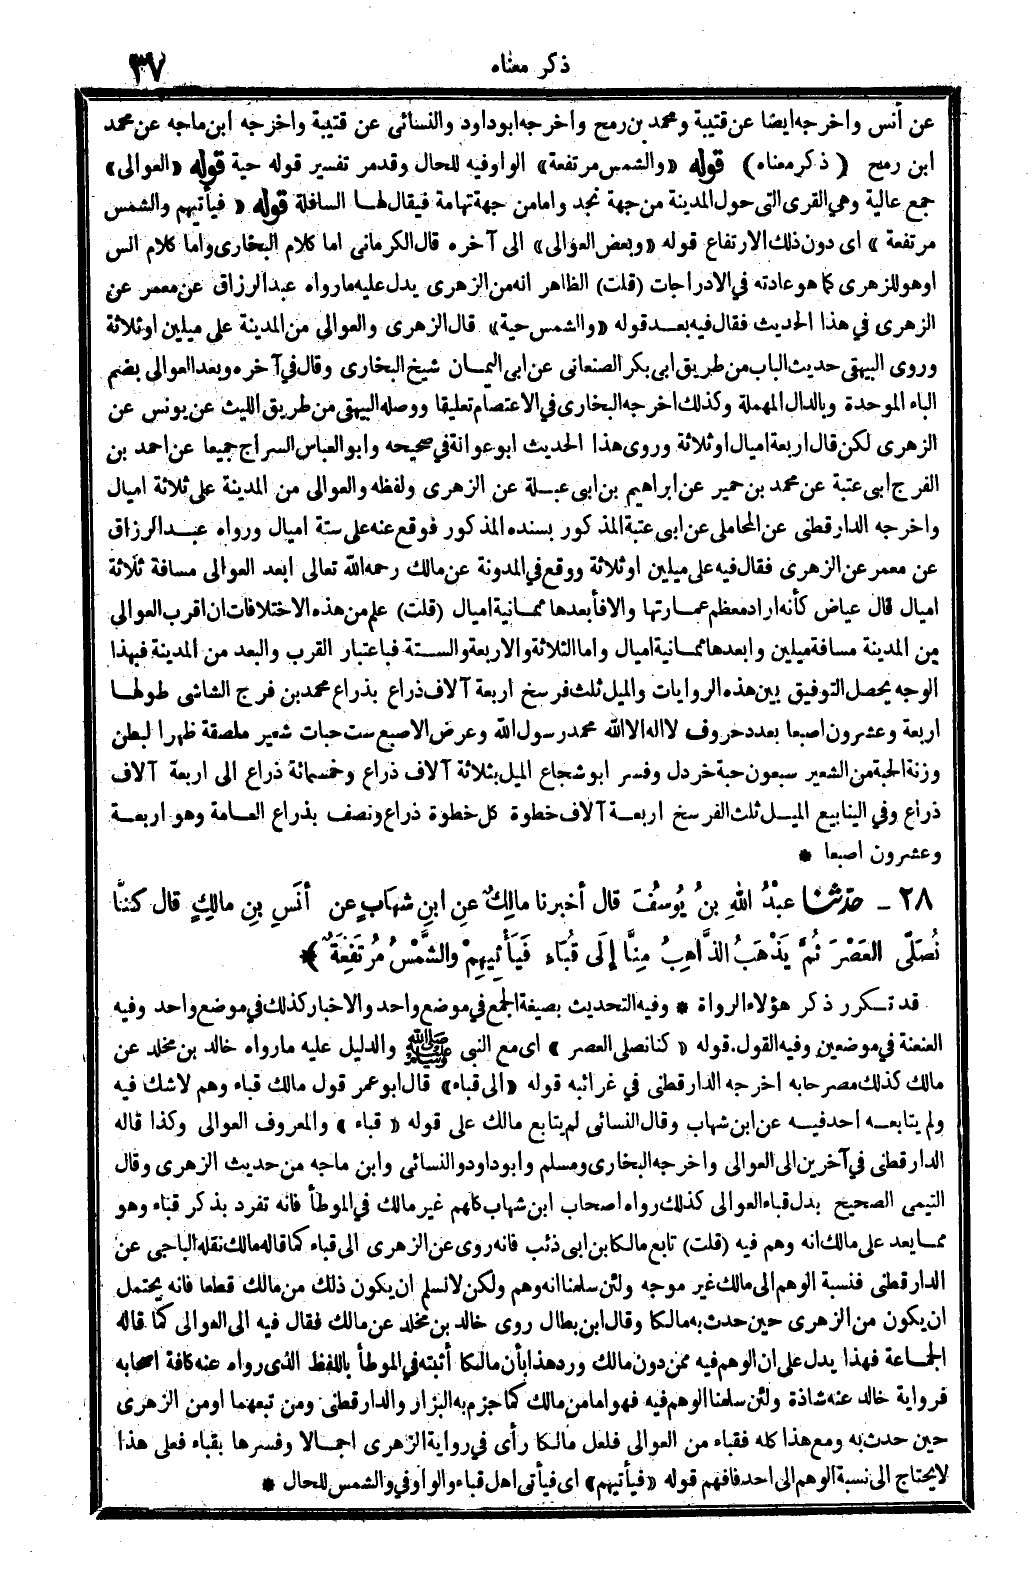 ذكر معناه
٣٧
عن أنس واخرجه ايضا عن قتيبة ومحمد بن رمح واخرجه ابوداود والنسائى عن قتيبة واخرجه ابن ماجه عن محمد
ابن رمح ( ذكر معناه ) قوله «والشمس مرتفعة» الواو فيه للحال وقد مر تفسير قوله حية قوله «العوالى»
جمع عالية وهى القرى التى حول المدينة من جهة نجد وامامن جهة تهامة فيقال لها السافلة قوله « فيأتيهم والشمس
مرتفعة » اى دون ذلك الارتفاع قوله «وبعض العوالى» الى آخره قال الكرمانى اما كلام البخارى واما كلام انس
او هو للزهرى كما هو عادته في الادراجات (قلت) الظاهر انه من الزهرى يدل عليه مارواه عبد الرزاق عن معمر عن
الزهرى في هذا الحديث فقال فيه بعد قوله «والشمس حية» قال الزهرى والعوالى من المدينة على ميلين او ثلاثة
وروى البيهقى حديث الباب من طريق ابى بكر الصنعانى عن ابى اليمان شيخ البخارى وقال في آخره وبعد العوالى بضم
الباء الموحدة وبالدال المهملة وكذلك اخرجه البخارى في الاعتصام تعليقا ووصله البيهقى من طريق الليث عن يونس عن
الزهرى لكن قال اربعة اميال او ثلاثة وروى هذا الحديث ابوعوانة في صحيحه وابو العباس السراج جميعا عن احمد بن
الفرج ابى عتبة عن محمد بن حمير عن ابراهيم بن ابى عبلة عن الزهرى ولفظه والعوالى من المدينة على ثلاثة اميال
واخرجه الدارقطنى عن المحاملى عن ابى عتبة المذكور بسنده المذكور فوقع عنه على ستة اميال ورواه عبد الرزاق
عن معمر عن الزهرى فقال فيه على ميلين او ثلاثة ووقع في المدونة عن مالك رحمه الله تعالى ابعد العوالى مسافة ثلاثة
اميال قال عياض كأنه اراد معظم عمارتها والا فأبعدها ثمانية اميال (قلت) علم من هذه الاختلافات ان اقرب العوالى
من المدينة مسافة ميلين وابعدها ثمانية اميال واما الثلاثة والاربعة والستة فباعتبار القرب والبعد من المدينة فبهذا
الوجه يحصل التوفيق بين هذه الروايات والميل ثلث فرسخ اربعة آلاف ذراع بذراع محمد بن فرج الشاشى طولها
اربعة وعشرون اصبعا بعدد حروف لا اله الا الله محمد رسول الله وعرض الاصبع ست حبات شعير ملصقة ظهرا لبطن
وزنة الحبة من الشعير سبعون حبة خردل وفسر ابو شجاع الميل بثلاثة آلاف ذراع وخمسمائة ذراع الى اربعة آلاف
ذراع وفي الينابيع الميل ثلث الفرسخ اربعة آلاف خطوة كل خطوة ذراع ونصف بذراع العامة وهو اربعة
وعشرون اصبعا *
٢٨ - حدثنا عَبْدُ اللهِ بنُ يُوسُفَ قال أخبرنا مالِكٌ عنِ ابنِ شِهَابٍ عن أنَسِ بنِ مالِكٍ قال كنَّا
نُصَلّى العَصْرَ ثُمَّ يَذْهَبُ الذَّاهِبُ مِنَّا إِلَى قُبَاءٍ فَيَأْتِيهِمْ والشَّمْسُ مُرْتَفِعَةٌ ﴾*
قد تكرر ذكر هؤلاء الرواة * وفيه التحديث بصيغة الجمع في موضع واحد والاخبار كذلك في موضع واحد وفيه
العنعنة في موضعين وفيه القول . قوله « كنا نصلى العصر » اى مع النبى ﷺ والدليل عليه مارواه خالد بن مخلد عن
مالك كذلك مصرحا به اخرجه الدارقطنى في غرائبه قوله «الى قباء» قال ابو عمر قول مالك قباء وهم لاشك فيه
ولم يتابعه احد فيه عن ابن شهاب وقال النسائى لم يتابع مالك على قوله « قباء » والمعروف العوالى وكذا قاله
الدارقطنى في آخرين الى العوالى واخرجه البخارى ومسلم وابوداود والنسائى وابن ماجه من حديث الزهرى وقال
التيمى الصحيح بدل قباء العوالى كذلك رواه اصحاب ابن شهاب كلهم غير مالك في الموطأ فانه تفرد بذكر قباء وهو
مما يعد على مالك انه وهم فيه (قلت) تابع مالكا بن ابى ذئب فانه روى عن الزهرى الى قباء كما قاله مالك نقله الباجى عن
الدارقطنى فنسبة الوهم الى مالك غير موجه ولئن سلمنا انه وهم ولكن لانسلم ان يكون ذلك من مالك قطعا فانه يحتمل
ان يكون من الزهرى حين حدث به مالكا وقال ابن بطال روى خالد بن مخلد عن مالك فقال فيه الى العوالى كما قاله
الجماعة فهذا يدل على ان الوهم فيه ممن دون مالك ورد هذا بأن مالكا أثبته في الموطأ باللفظ الذى رواه عنه كافة اصحابه
فرواية خالد عنه شاذة ولئن سلمنا الوهم فيه فهو امامن مالك كما جزم به البزار والدارقطنى ومن تبعهما او من الزهرى
حين حدث به ومع هذا كله فقباء من العوالى فلعل مالكا رأى في رواية الزهرى اجمالا وفسرها بقباء فعلى هذا
لا يحتاج الى نسبة الوهم الى احد فافهم قوله «فيأتيهم» اى فيأتى اهل قباء والواو في والشمس للحال *